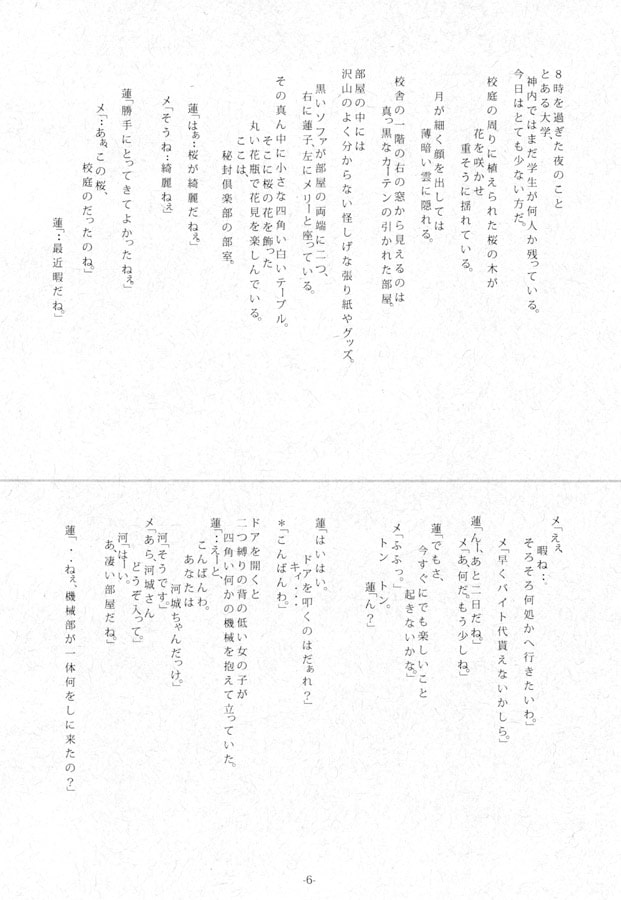 ８時を過ぎた夜のこと
とある大学、
神内ではまだ学生が何人か残っている。
今日はとても少ない方だ。
校庭の周りに植えられた桜の木が
花を咲かせ
重そうに揺れている。
月が細く顔を出しては
薄暗い雲に隠れる。
校舎の一階の右の窓から見えるのは
真っ黒なカーテンの引かれた部屋。
部屋の中には
沢山のよく分からない怪しげな張り紙やグッズ。
黒いソファが部屋の両端に二つ、
右に蓮子、左にメリーと座っている。
その真ん中に小さな四角い白いテーブル。
そこに桜の花を飾った
丸い花瓶で花見を楽しんでいる。
ここは、
秘封倶楽部の部室。
蓮「はぁ…桜が綺麗だねぇ。」
メ「そうね…綺麗ねぇ」
蓮「勝手にとってきてよかったねぇ。」
メ「…あぁ、この桜、
校庭のだったのね。」
蓮「…最近暇だね。」
メ「えぇ
暇ね…。
そろそろ何処かへ行きたいわ。」
メ「早くバイト代貰えないかしら。」
蓮「んー、あと二日だね。」
メ「あ、何だ。もう少しね。」
蓮「でもさ、
今すぐにでも楽しいこと
起きないかな。」
メ「ふふっ。」
トン　トン。
蓮「ん？」
蓮「はいはい。
ドアを叩くのはだぁれ？」
キィ・・・
＊「こんばんわ。」
ドアを開くと
二つ縛りの背の低い女の子が
四角い何かの機械を抱えて立っていた。
蓮「…えーと、
こんばんわ。
あなたは
河城ちゃんだっけ。」
河「そうです。」
メ「あら、河城さん
どうぞ入って。」
河「はーい。
あ、凄い部屋だね。」
蓮「・・ねぇ、機械部が一体何をしに来たの？」
-6-